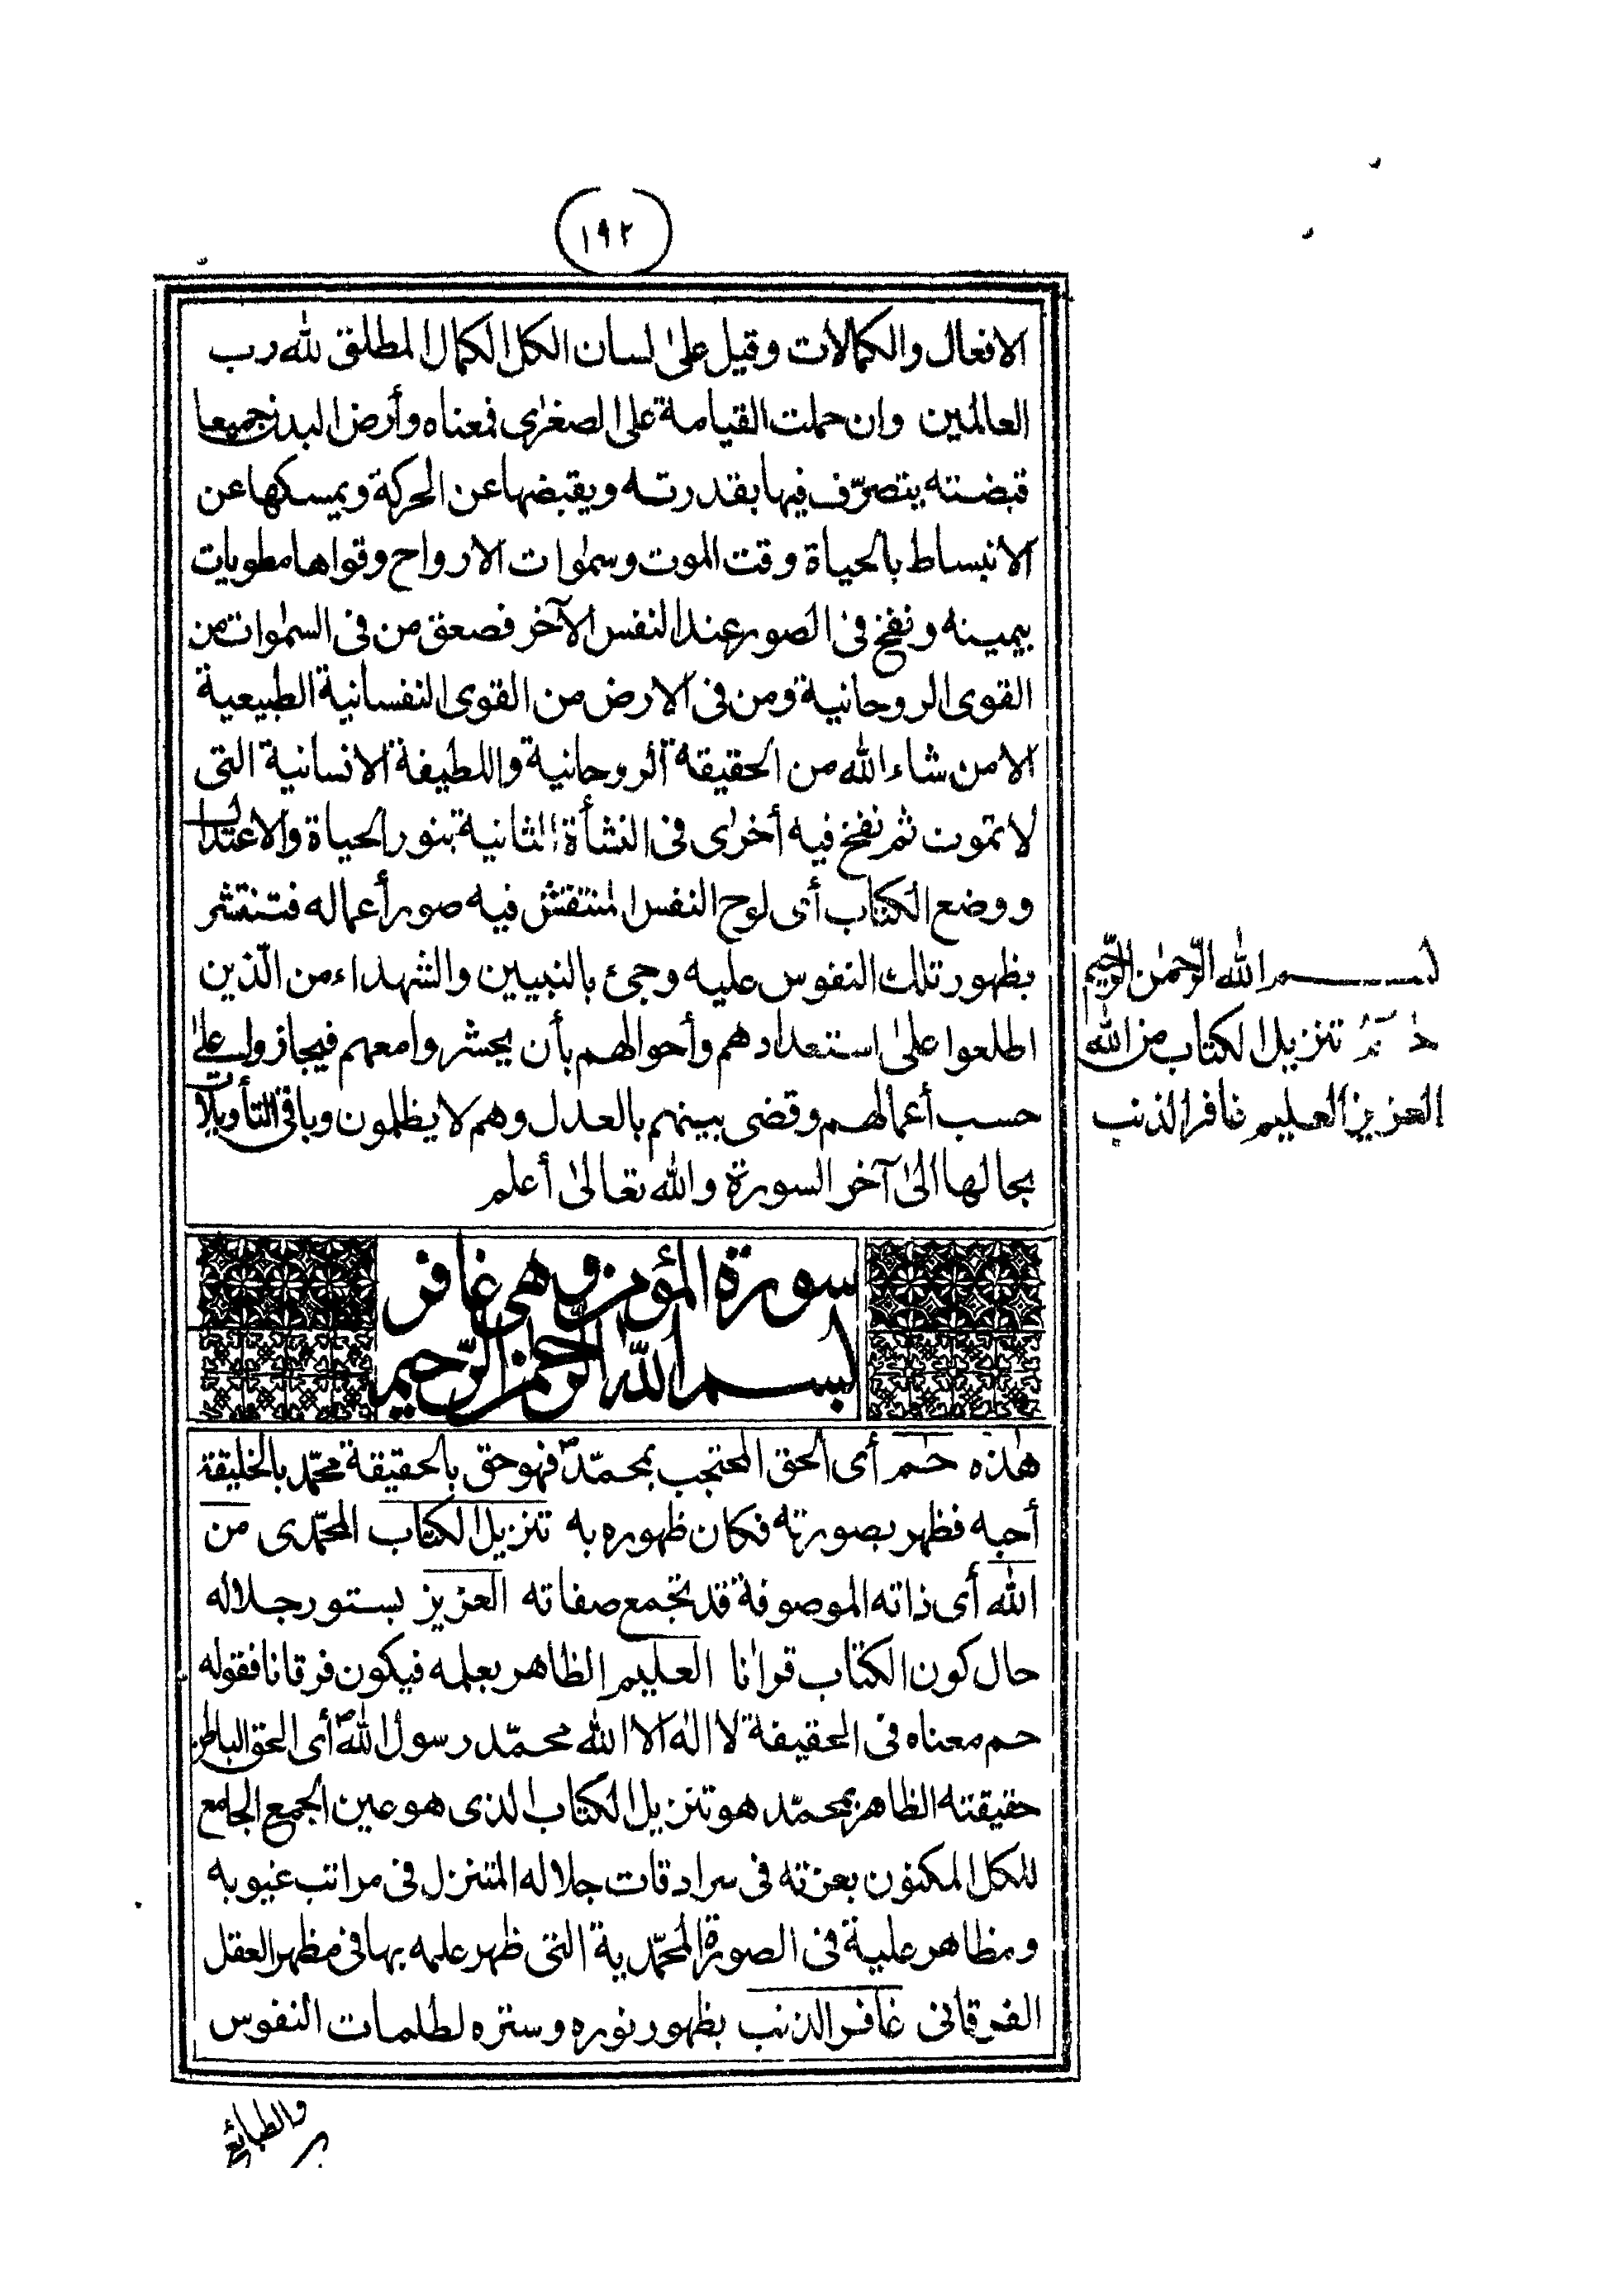 ١٩٢
الافعال والكمالات وقيل على لسان الكل الكمال المطلق لله رب
العالمين وان حملت القيامة على الصغرى فمعناه وأرض البدن جميعا
قبضته يتصرّف فيها بقدرته ويقبضها عن الحركة ويمسكها عن
الانبساط بالحياة وقت الموت وسموات الارواح وقواها مطويات
بيمينه ونفخ فى الصور عند النفس الآخر فصعق من فى السموات من
القوى الروحانية ومن فى الارض من القوى النفسانية الطبيعية
الا من شاء الله من الحقيقة الروحانية واللطيفة الانسانية التى
لا تموت ثم نفخ فيه أخرى فى النشأة الثانية بنور الحياة والاعتدال
ووضع الكتاب أى لوح النفس المنتقش فيه صور أعماله فتنتقش
بظهور تلك النفوس عليه وجئ بالنبيين والشهداء من الّذين
اطلعوا على استعدادهم وأحوالهم بأن يحشروا معهم فيجازوا على
حسب أعمالهم وقضى بينهم بالعدل وهم لا يظلمون وباقى التأويلات
بحالها الى آخر السورة والله تعالى أعلم
سورة المؤمن وهى غافر
بسم الله الرحمن الرّحيم
هذه حم أى الحق المحتجب بمحمّد فهو حق بالحقيقة محمّد بالخليقة
أحبه فظهر بصورته فكان ظهوره به تنزيل الكتاب المحمّدى من
الله أى ذاته الموصوفة قد تجمع صفاته العزيز بستور جلاله
حال كون الكتاب قرانا العليم الظاهر بعلمه فيكون فرقانا فقوله
حم معناه فى الحقيقة لا اله الا الله محمّد رسول الله أى الحق الباطن
حقيقته الظاهر بمحمّد هو تنزيل الكتاب الذى هو عين الجمع الجامع
للكل المكنون بعزته فى سرادقات جلاله المتنزل فى مراتب غيوبه
ومظاهر علية فى الصورة المحمّدية التى ظهر علمه بها فى مظهر العقل
الفرقانى غافر الذنب بظهور نوره وستره لظلمات النفوس
والطبائع
بسم الله الرّحمن الرّحيم
حم تنزيل الكتاب من الله
العزيز العليم غافر الذنب